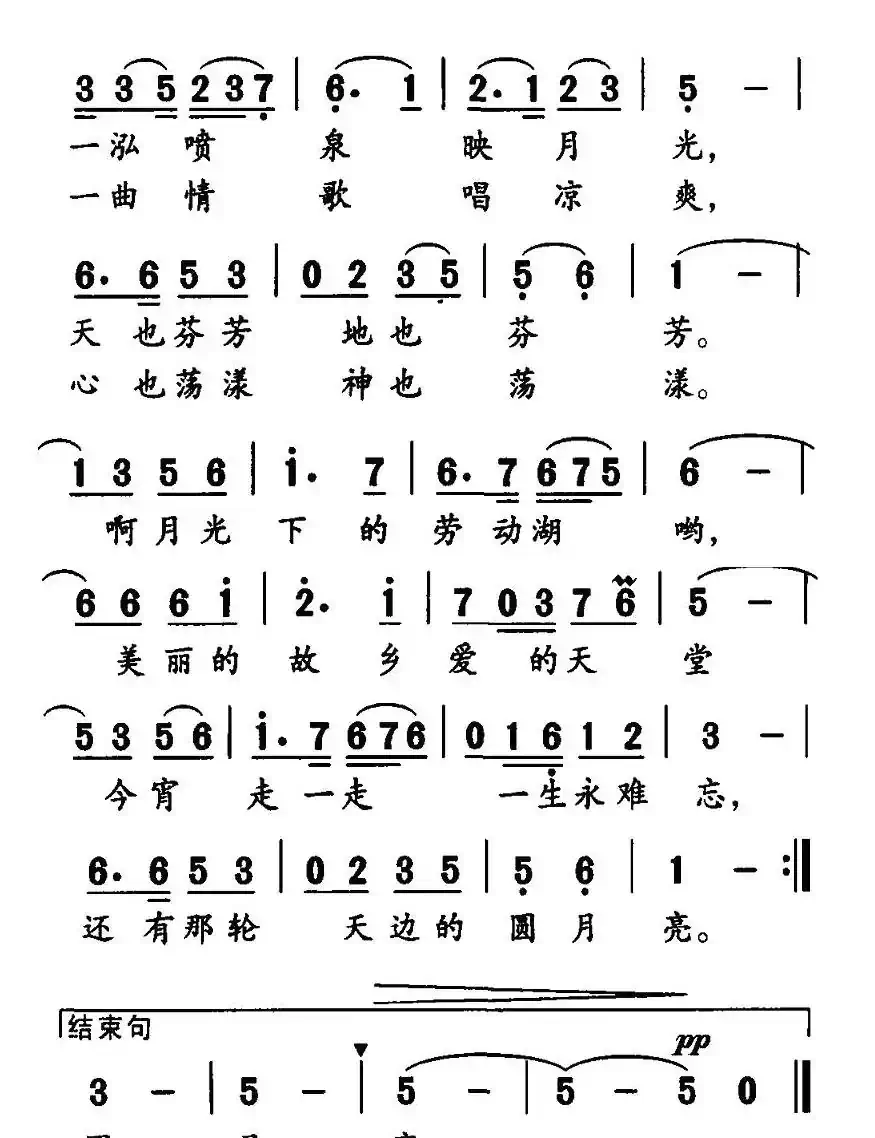 3 3 5 2 3 7 | 6. 1 | 2. 1 2 3 | 5 - |
一泓 喷 泉 映 月 光，
一曲 情 歌 唱 凉 爽，
6. 6 5 3 | 0 2 3 5 | 5 6 | 1 - |
天 也芬芳 地也 芬 芳。
心 也荡漾 神也 荡 漾。
1 3 5 6 | 1. 7 | 6. 7 6 7 5 | 6 - |
啊月光 下 的 劳动湖 哟，
6 6 6 1 | 2. 1 | 7 0 3 7 6 | 5 - |
美丽的 故 乡 爱 的天 堂
5 3 5 6 | 1. 7 6 7 6 | 0 1 6 1 2 | 3 - |
今宵 走 一走 一生永难 忘，
6. 6 5 3 | 0 2 3 5 | 5 6 | 1 - :||
还 有那轮 天边的 圆 月 亮。
结束句
pp
3 - | 5 - | 5 - | 5 - 5 0 ||